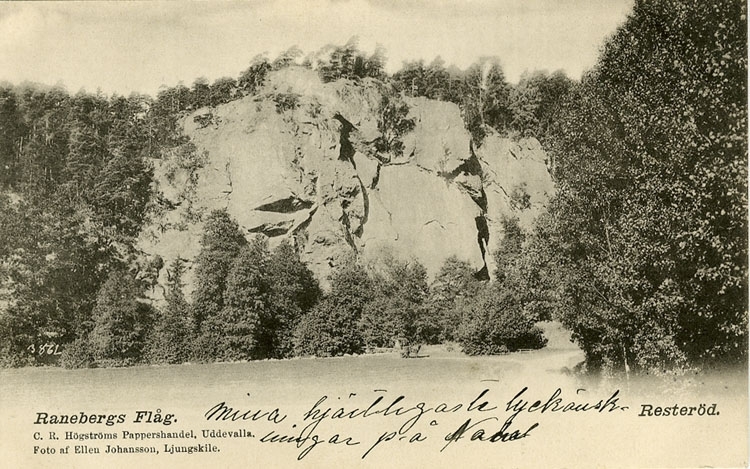 3862
Ranebergs Flåg.
C. R. Högströms Pappershandel, Uddevalla.
Foto af Ellen Johansson, Ljungskile.
Mina hjärtligaste lyckönsk-
ningar på
Resteröd.